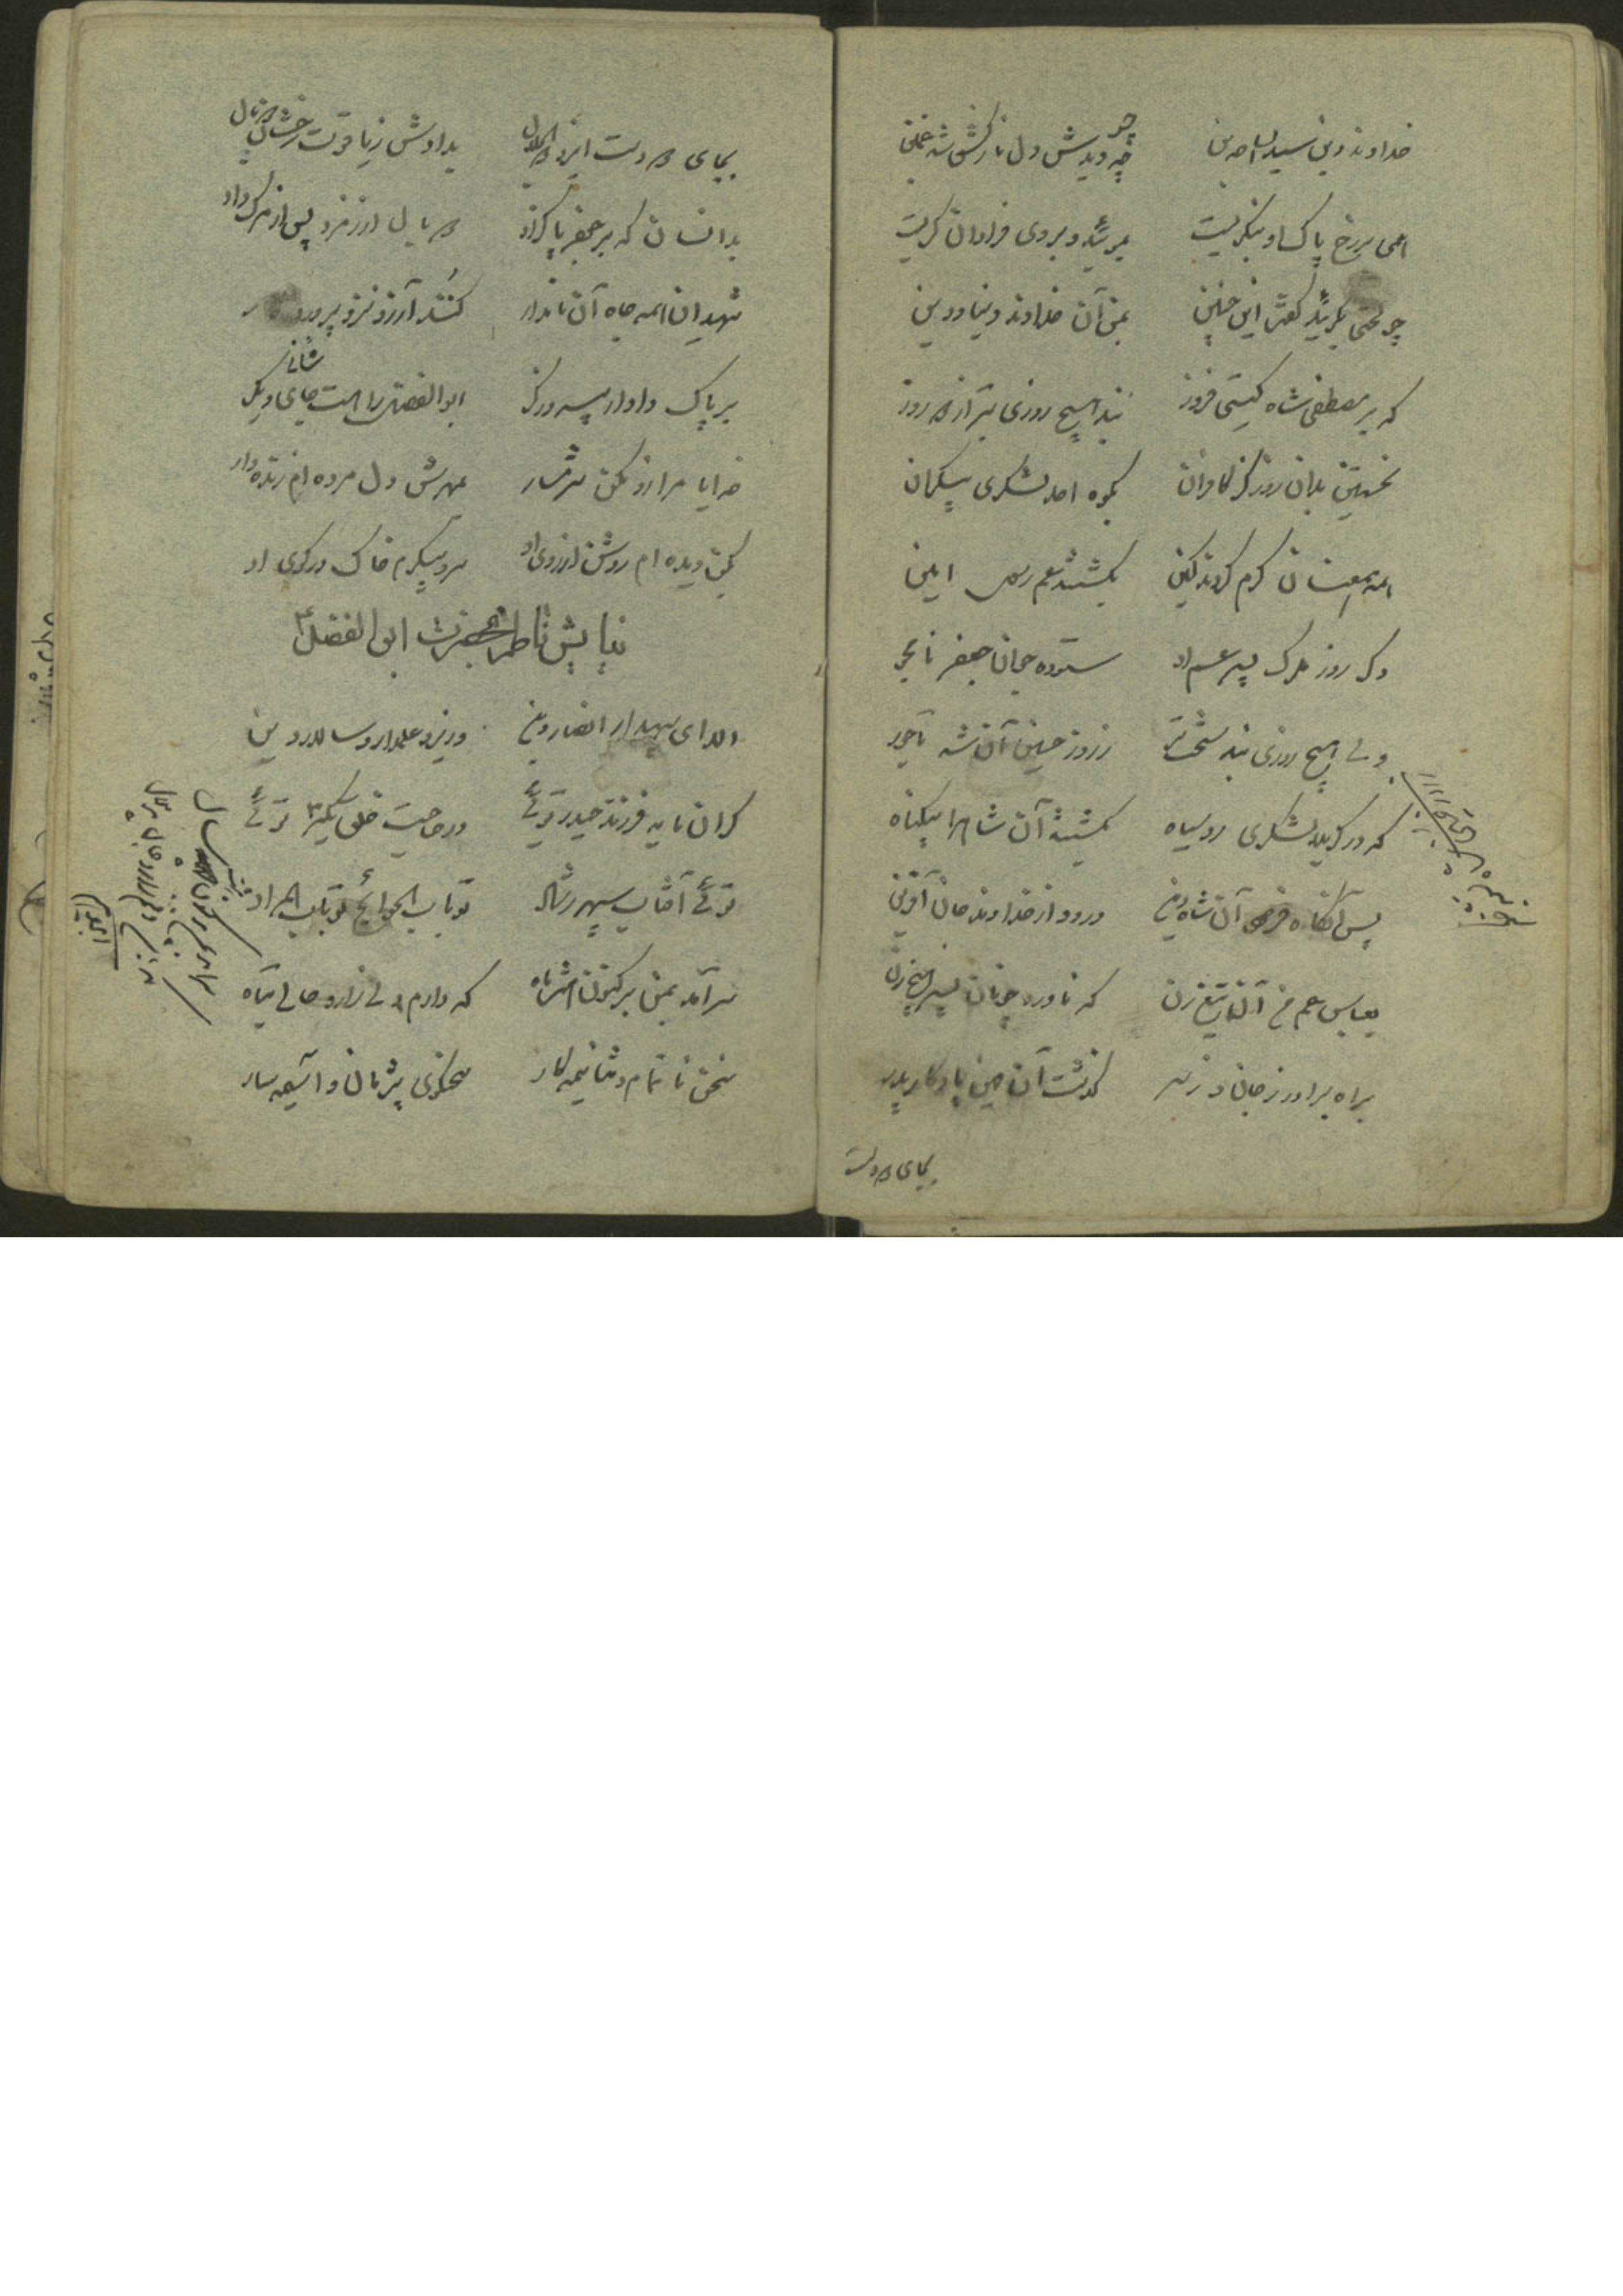 خداوند دین سید الساجدین چو دیدش دل نازکش شد غمین
همی بر رخ پاک او بنگریست بمویید و بر وی فراوان گریست
چو لختی بگرئید گفت این چنین بمن آن خداوند دنیا و دین
که بر مصطفی شاه گیتی فروز نبد هیچ روزی بتر از دو روز
نخستین بدان روز کز کافران بکوه احد لشکری بیکران
همه بیعتان گرم کردند کین بکشتند عم رسول امین
دگر روز مرگ پسر عم او ستوده جوان جعفر نامجو
ولی هیچ روزی نبد سخت تر ز روز حسین آن شه تاجور
که در کربلا لشکری روسیاه بکشتند آن شاه را بیگناه
پس آنگاه فرمود آن شاه دین درود از خداوند جان آفرین
بعباس عم من آن تیغ زن که ناورد چونان پسر هیچ زن
براه برادر ز جان و ز سر گذشت آن مهین یادگار پدر
بجای دو دست
بجای دو دست ایزد بدادش ز یاقوت رخشان دو بال
بدانسان که بر جعفر پاکزاد دو بال از زمرد پس از مرگ داد
شهیدان همه جاه آن نامدار کنند آرزو نزد پرورد
بر پاک دادار پیروزگر ابوالفضل را هست جای دگر
خدایا مرا زو مکن شرمسار بمهرش دل مرده ام زنده دار
بکن دیده ام روشن از روی او سر و پیکرم خاک در کوی او
نیایش ناظم بحضرت ابوالفضل ع
الا ای سپهدار انصار دین وزیر و علمدار و سالار دین
گران مایه فرزند حیدر توئی در حاجت خلق یکسر توئی
توئی آفتاب سپهر رشاد تو باب الحوائج تو باب المراد
سرآمد بمن بر کنون هشت ماه که دارم دلی زار و حالی تباه
سخن ناتمام و ثنا نیمه کار سخنگوی پژمان و آسیمه سار